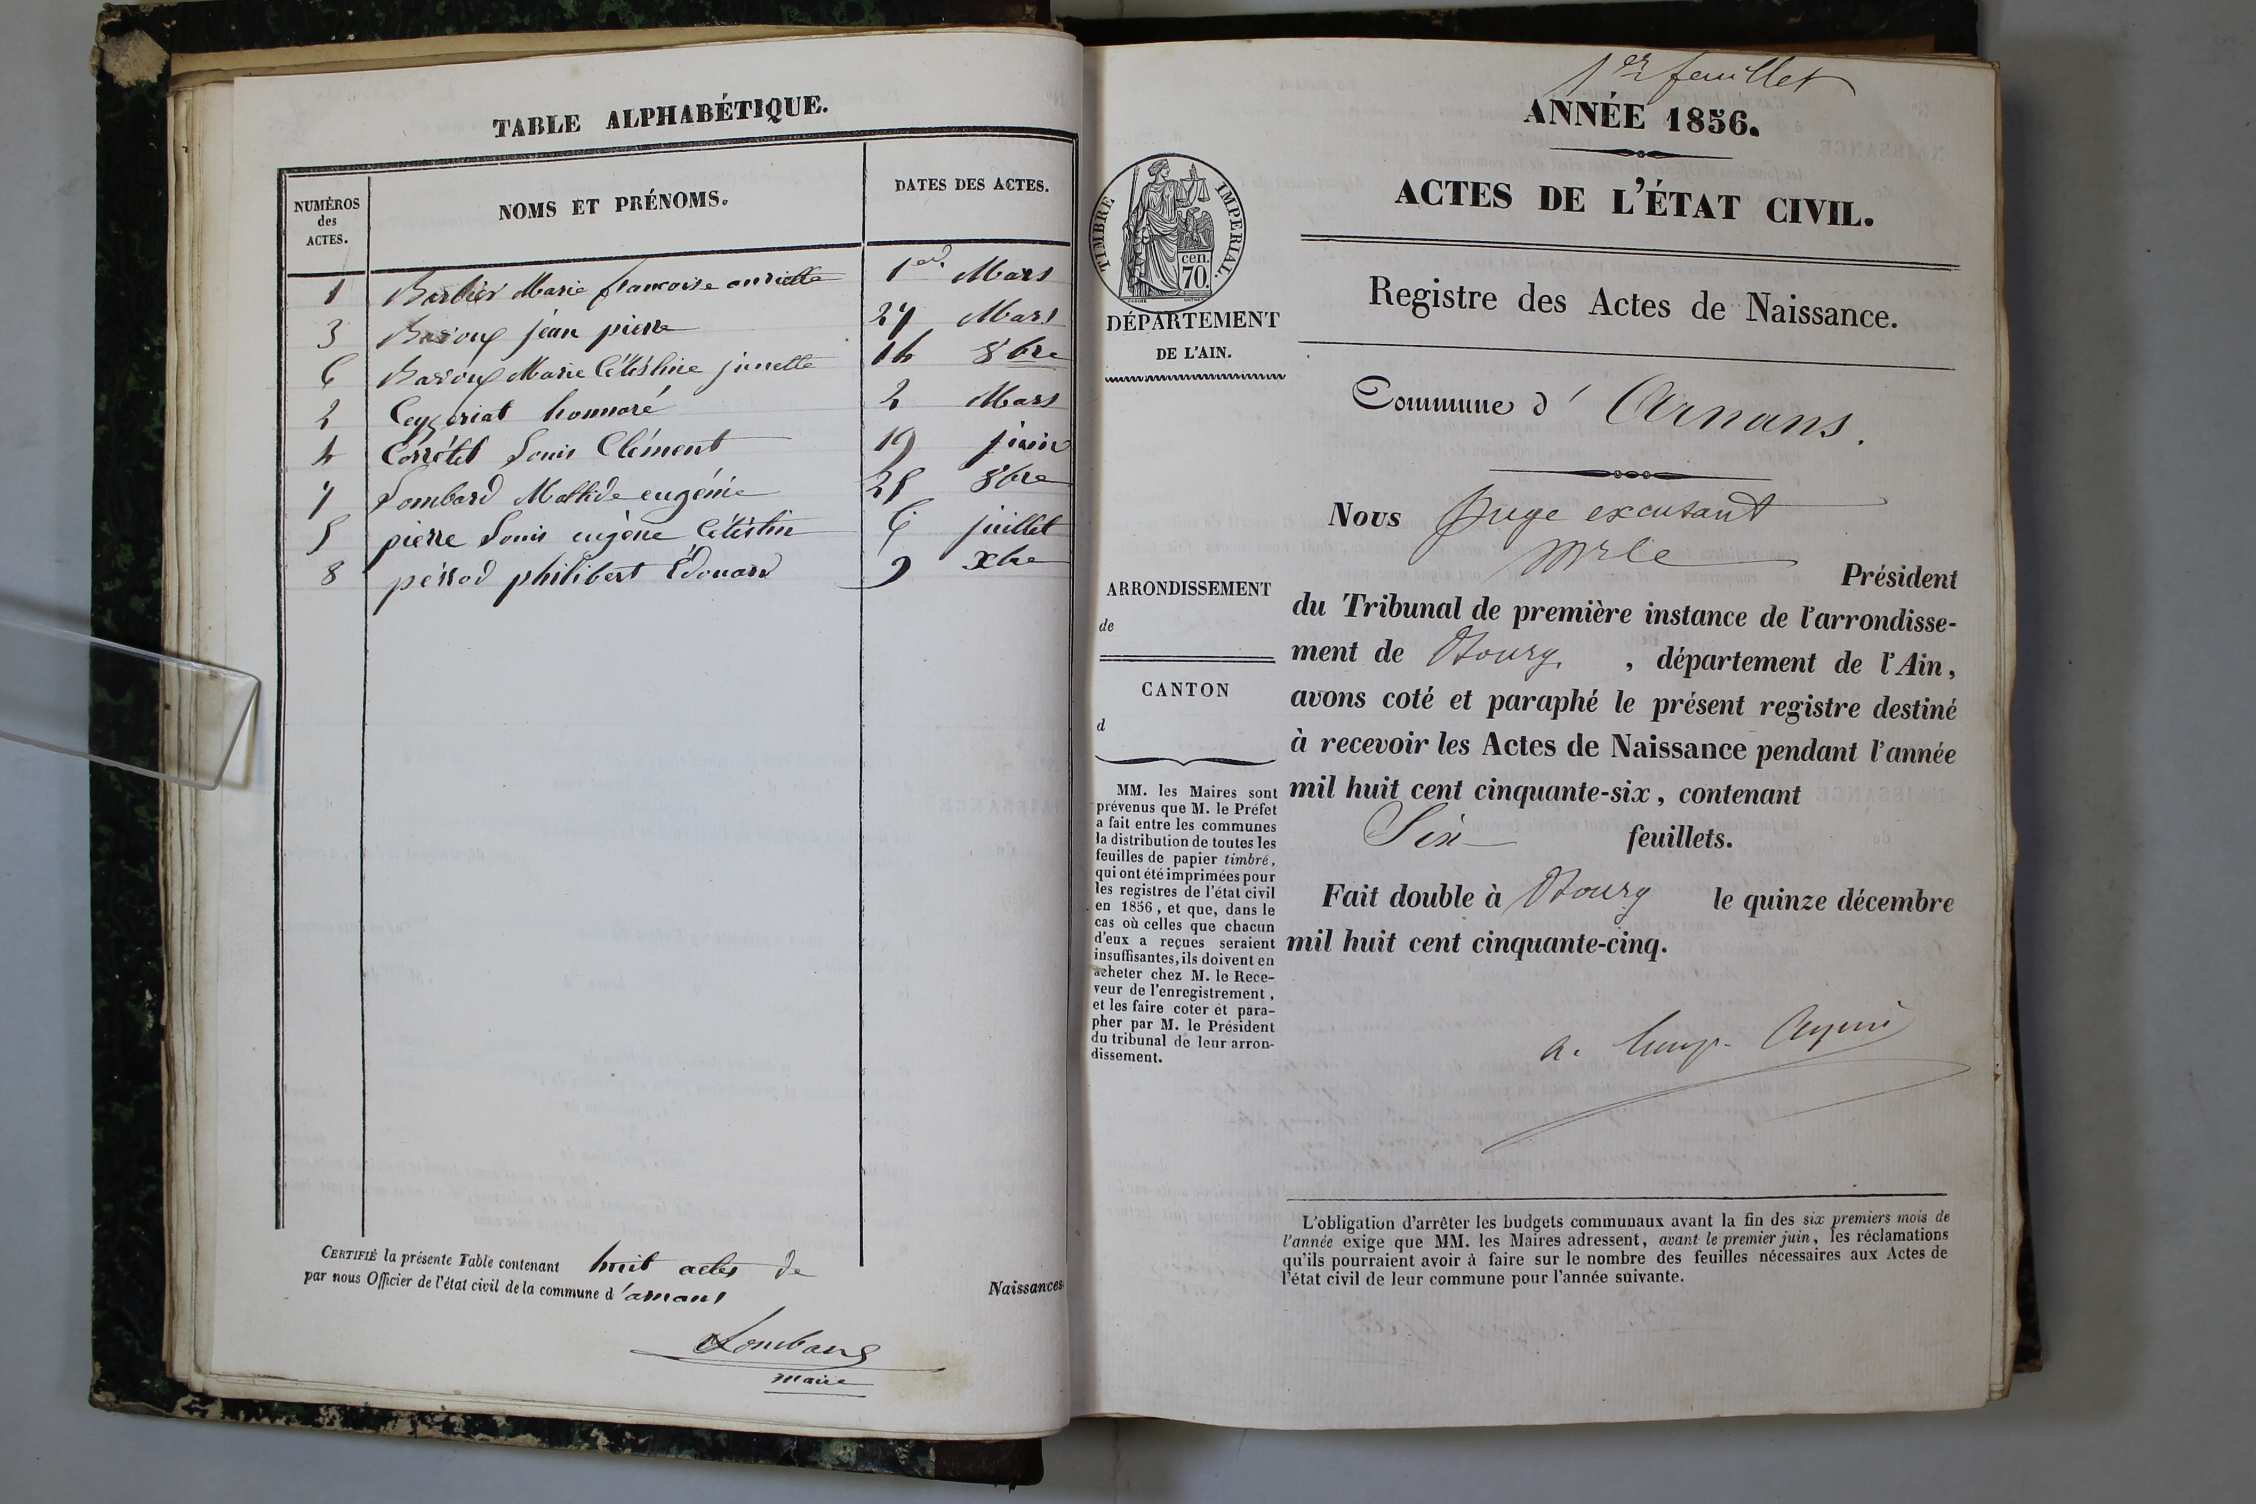 TABLE ALPHABÉTIQUE.
NUMÉROS des ACTES. NOMS ET PRÉNOMS. DATES DES ACTES.
1 Barbier Marie françoise anriette 1er Mars
3 Baroux jéan pierre 27 Mars
6 Baroux Marie Céléstine jinette 16 8bre
2 Ceyzeriat honnoré 2 Mars
4 Corrétel Louis Clément 19 juin
7 Lombard Matilde eugénie 28 8bre
5 piérre Louis eugène Céléstin 6 juillet
8 pérrod philibert Édouard 9 Xbre
CERTIFIÉ la présente Table contenant huit actes de Naissances
par nous Officier de l'état civil de la commune d'arnans
Lombard
maire
1er feuillet
ANNÉE 1856.
ACTES DE L'ÉTAT CIVIL.
Registre des Actes de Naissance.
TIMBRE IMPERIAL.
cen. 70.
DÉPARTEMENT
DE L'AIN.
Commune d'Arnans.
ARRONDISSEMENT
de
CANTON
d
MM. les Maires sont
prévenus que M. le Préfet
a fait entre les communes
la distribution de toutes les
feuilles de papier timbré,
qui ont été imprimées pour
les registres de l'état civil
en 1856, et que, dans le
cas où celles que chacun
d'eux a reçues seraient
insuffisantes, ils doivent en
acheter chez M. le Rece-
veur de l'enregistrement,
et les faire coter et para-
pher par M. le Président
du tribunal de leur arron-
dissement.
Nous Juge excusant
Mr le Président
du Tribunal de première instance de l'arrondisse-
ment de Bourg, département de l'Ain,
avons coté et paraphé le présent registre destiné
à recevoir les Actes de Naissance pendant l'année
mil huit cent cinquante-six, contenant
Six feuillets.
Fait double à Bourg le quinze décembre
mil huit cent cinquante-cinq.
L'obligation d'arrêter les budgets communaux avant la fin des six premiers mois de
l'année exige que MM. les Maires adressent, avant le premier juin, les réclamations
qu'ils pourraient avoir à faire sur le nombre des feuilles nécessaires aux Actes de
l'état civil de leur commune pour l'année suivante.